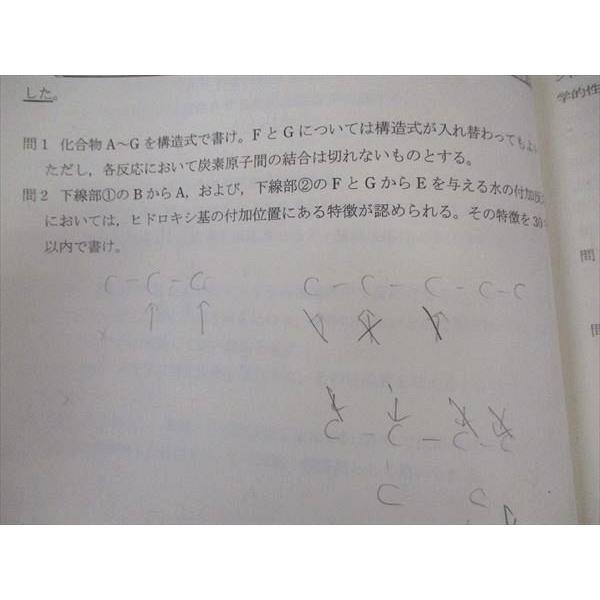 した。
学的性
問1 化合物A〜Gを構造式で書け。FとGについては構造式が入れ替わってもよい
ただし，各反応において炭素原子間の結合は切れないものとする。
問2 下線部①のBからA，および，下線部②のFとGからEを与える水の付加反
においては，ヒドロキシ基の付加位置にある特徴が認められる。その特徴を30
以内で書け。
問
問
C-C-C
C-C-C-C-C
C-C-C-C
C
C